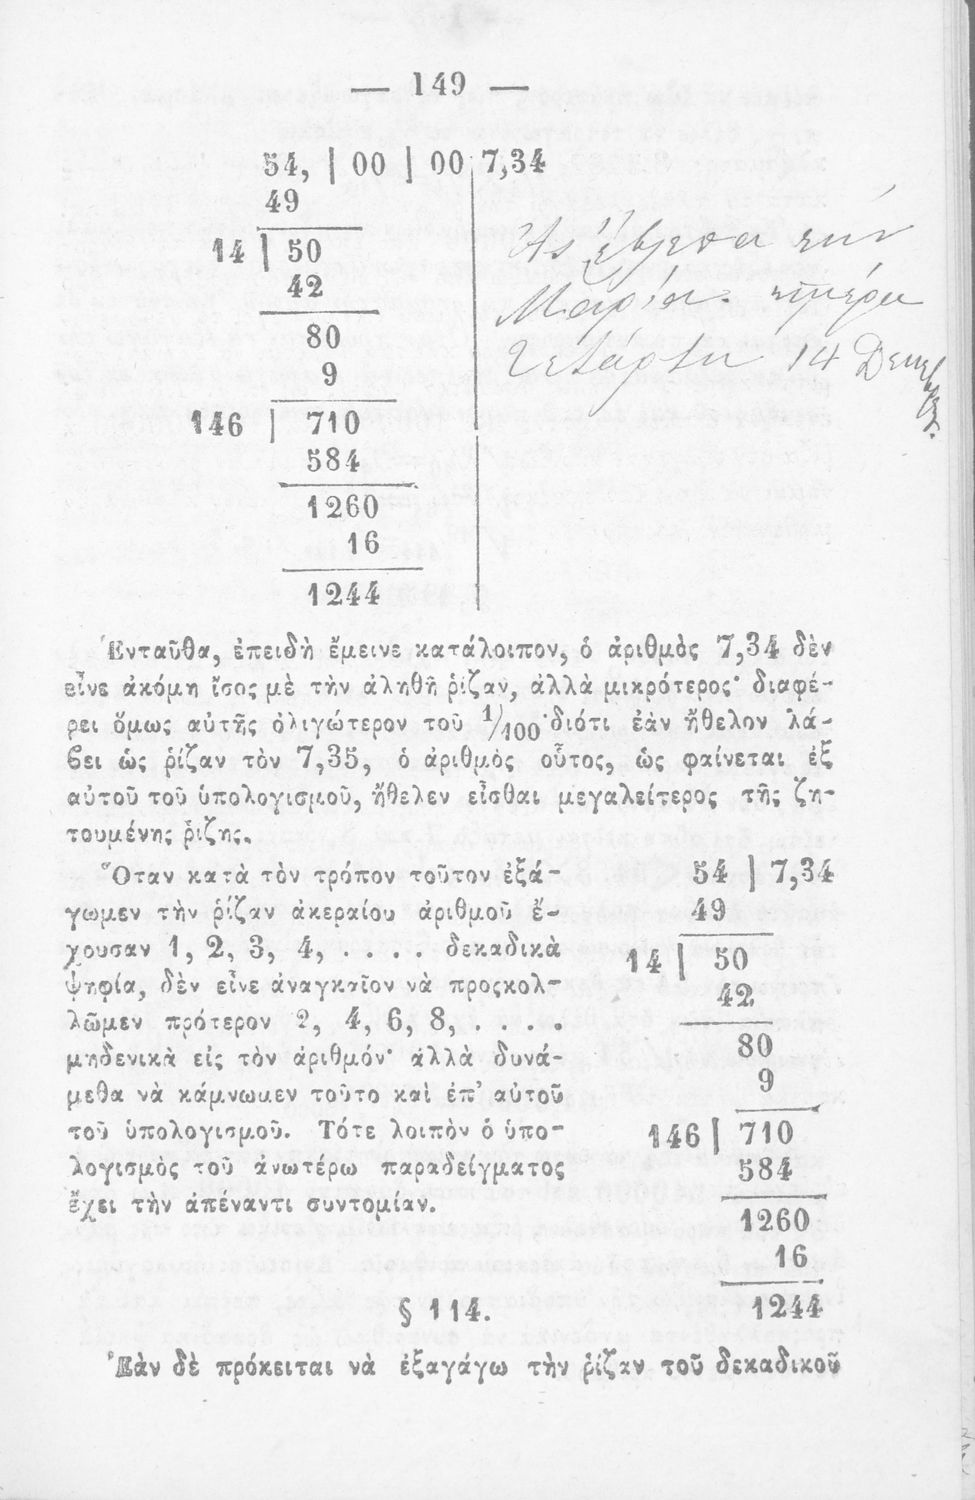 — 149 —
54, | 00 | 00 7,34
49
14 | 50
42
80
9
146 | 710
584
1260
16
1244
Μαρία. ημέρα
Τετάρτη 14 Δεκεμβρ.
Ἐνταῦθα, ἐπειδὴ ἔμεινε κατάλοιπον, ὁ ἀριθμὸς 7,34 δὲν
εἶνε ἀκόμη ἴσος μὲ τὴν ἀληθῆ ῥίζαν, ἀλλὰ μικρότερος· διαφέ-
ρει ὅμως αὐτῆς ὀλιγώτερον τοῦ 1/100· διότι ἐὰν ἤθελον λά-
βει ὡς ῥίζαν τὸν 7,35, ὁ ἀριθμὸς οὗτος, ὡς φαίνεται ἐξ
αὐτοῦ τοῦ ὑπολογισμοῦ, ἤθελεν εἶσθαι μεγαλείτερος τῆς ζη-
τουμένης ῥίζης.
Ὅταν κατὰ τὸν τρόπον τοῦτον ἐξά-
γωμεν τὴν ῥίζαν ἀκεραίου ἀριθμοῦ ἔ-
χουσαν 1, 2, 3, 4, . . . . δεκαδικὰ
ψηφία, δὲν εἶνε ἀναγκαῖον νὰ προςκολ-
λῶμεν πρότερον 2, 4, 6, 8, . . . .
μηδενικὰ εἰς τὸν ἀριθμόν· ἀλλὰ δυνά-
μεθα νὰ κάμνωμεν τοῦτο καὶ ἐπ’ αὐτοῦ
τοῦ ὑπολογισμοῦ. Τότε λοιπὸν ὁ ὑπο-
λογισμὸς τοῦ ἀνωτέρω παραδείγματος
ἔχει τὴν ἀπέναντι συντομίαν.
54 | 7,34
49
14 | 50
42
80
9
146 | 710
584
1260
16
1244
§ 114.
Ἐὰν δὲ πρόκειται νὰ ἐξαγάγω τὴν ῥίζαν τοῦ δεκαδικοῦ